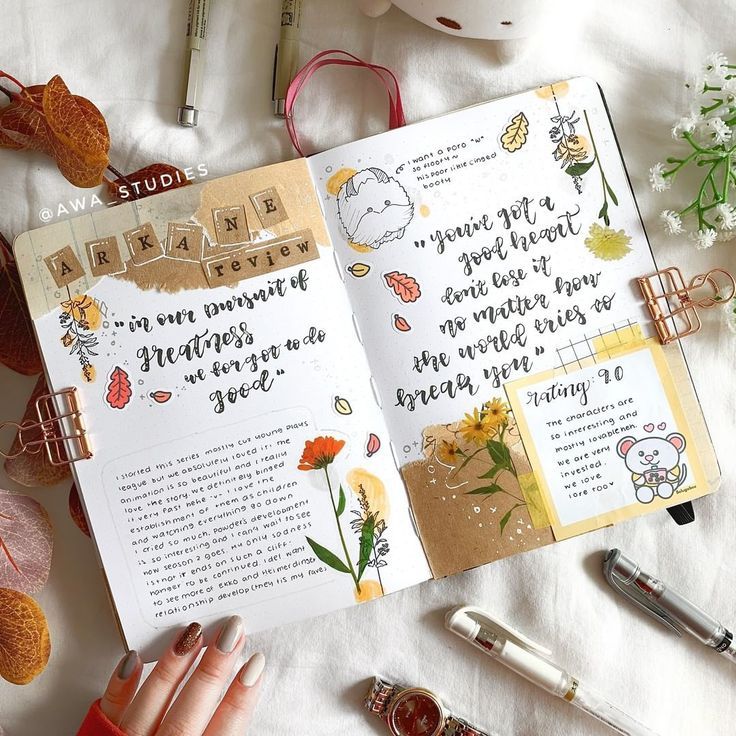 @AWA_STUDIES
ARKANE
review
"in our pursuit of
greatness
we forgot to do
good"
I started this series mostly cuz young plays
league but we absolutely loved it! The
animation is so beautiful and I really
love the story. We definitely binged
it very fast hehe ~u~ I love the
establishment of them as children
and watching everything go down.
I cried so much. Powder's development
is so interesting and I can't wait to see
how season 2 goes. My only sadness
is that it ends on such a cliff-
hanger to be continued. I def want
to see more of Ekko and Heimerdinger
relationship develop (they tis my faves
I want a poro "w"
so floofy ~
his poor little
booty
"you've got a
good heart
don't lose it
no matter how
the world tries to
break you"
rating: 9.0
The characters are
so interesting and
mostly lovable heh.
we are very
invested.
we love
lore too ♥